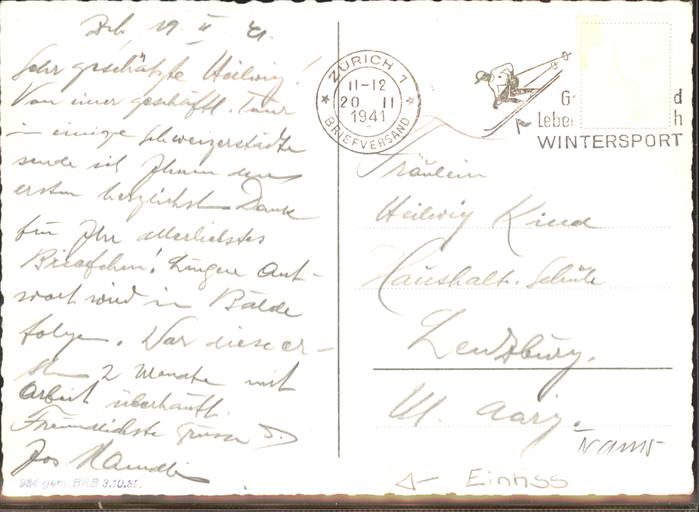 Zch, 19. II. 41.
Sehr geschätzte Heilwig!
Von einer geschäftl. Tour
in einige Schweizerstädte
sende ich Ihnen den
ersten herzlichsten Dank
für Ihr allerliebstes
Brieflein! Längere Ant-
wort wird in Bälde
folgen. War diese er-
sten 2 Monate mit
Arbeit überhäuft.
Freundlichste Grüsse
Jos
984 gem. BRB 3.10.39.
ZÜRICH 1
11-12
20 II
1941
BRIEFVERSAND
G d
Lebe h
WINTERSPORT
Fräulein
Heilwig Kind
Haushalt. Schule
Lenzburg.
Kt. Aarg.
Einriss